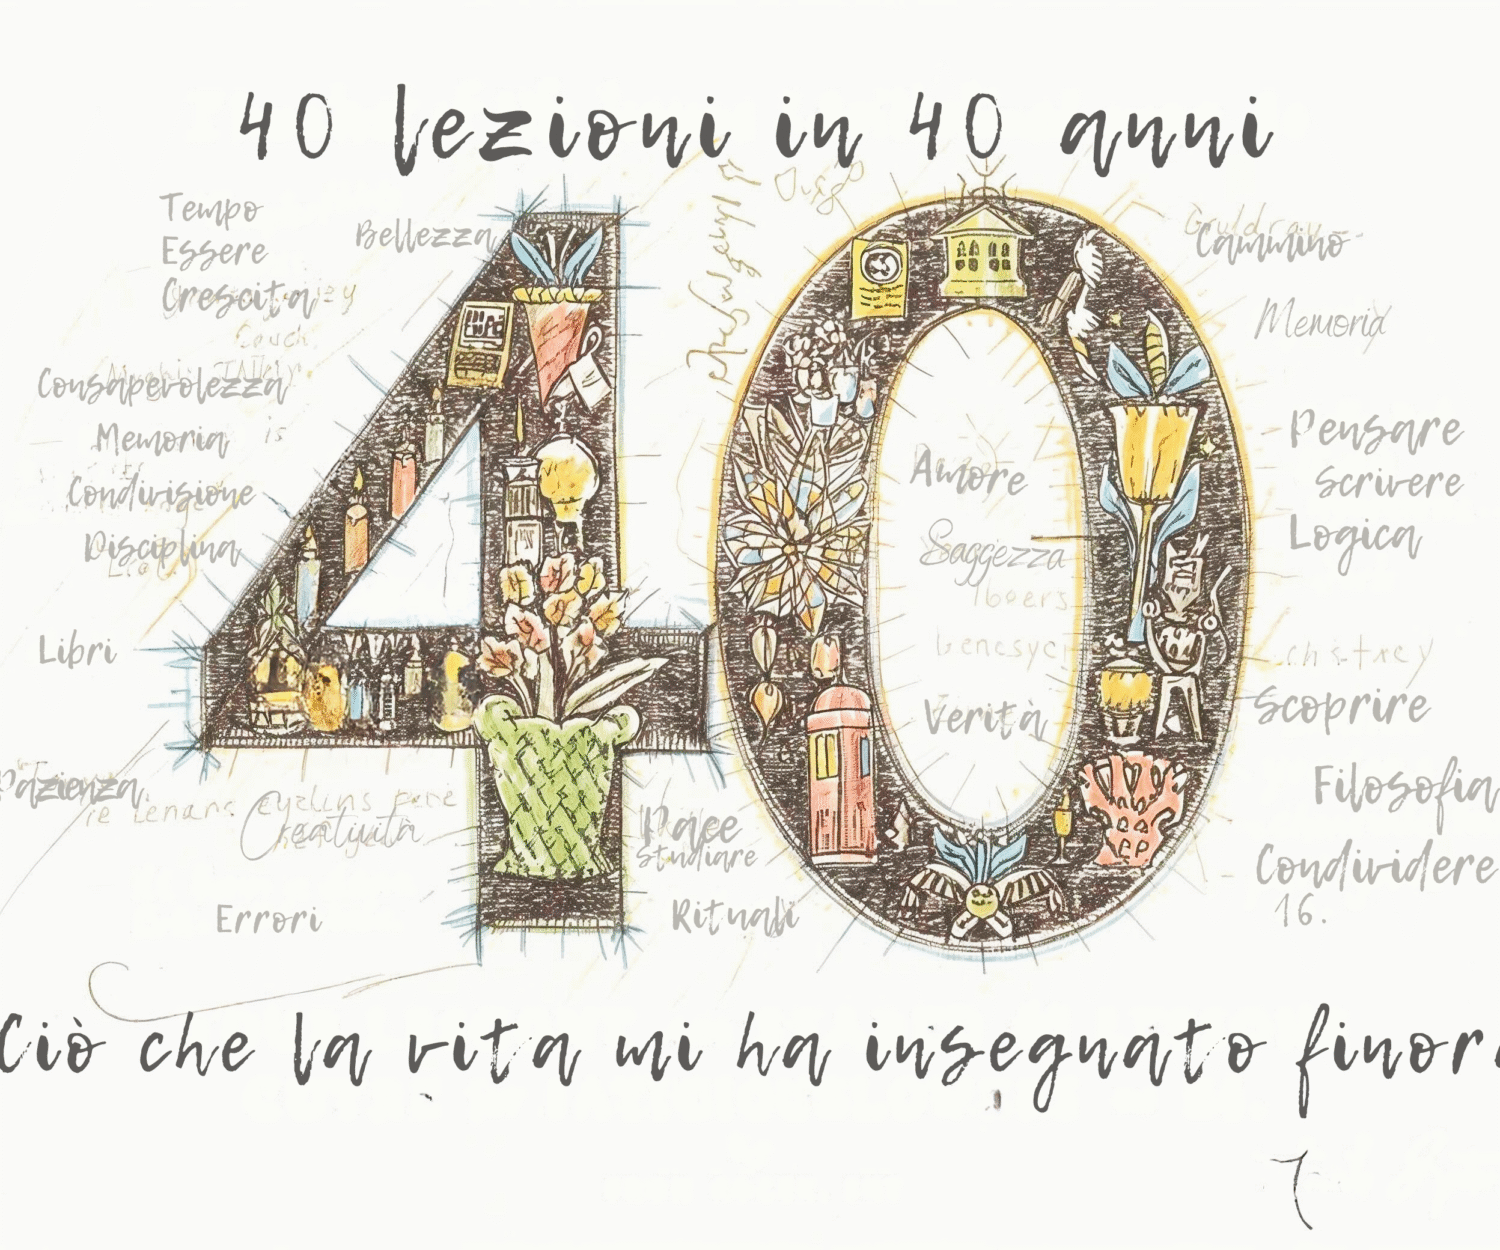 40 lezioni in 40 anni
Tempo
Essere
Crescita
Bellezza
Cammino
Memoria
Consapevolezza
Memoria is
Condivisione
Disciplina
Pensare
Scrivere
Logica
Amore
Saggezza
Libri
Verità
Scoprire
Pazienza
Creatività
Pace
Studiare
Filosofia
Condividere
16.
Errori
Rituali
Ciò che la vita mi ha insegnato finor